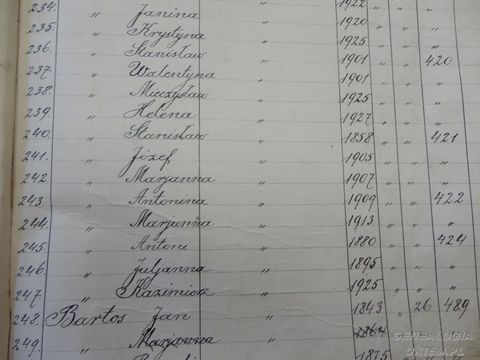 234. " Janina " 1922 " "
235. " Krystyna " 1920 " "
236. " Stanisław " 1925 " "
237. " Walentyna " 1901 " 420
238. " Mieczysław " 1901 " "
239. " Helena " 1925 " "
240. " Stanisław " 1927 " "
241. " Józef " 1858 " 421
242 " Marjanna " 1905 " "
243. " Antonina " 1907 " "
244. " Marjanna " 1909 " 422
245. " Antoni " 1913 " "
246. " Juljanna " 1880 " 424
247. " Kazimierz " 1895 " "
248. Bartos Jan " 1925 " "
249. " Marjanna 1843 " 26 489
1864
1875
GENEALOGIA
OKIEM.PL